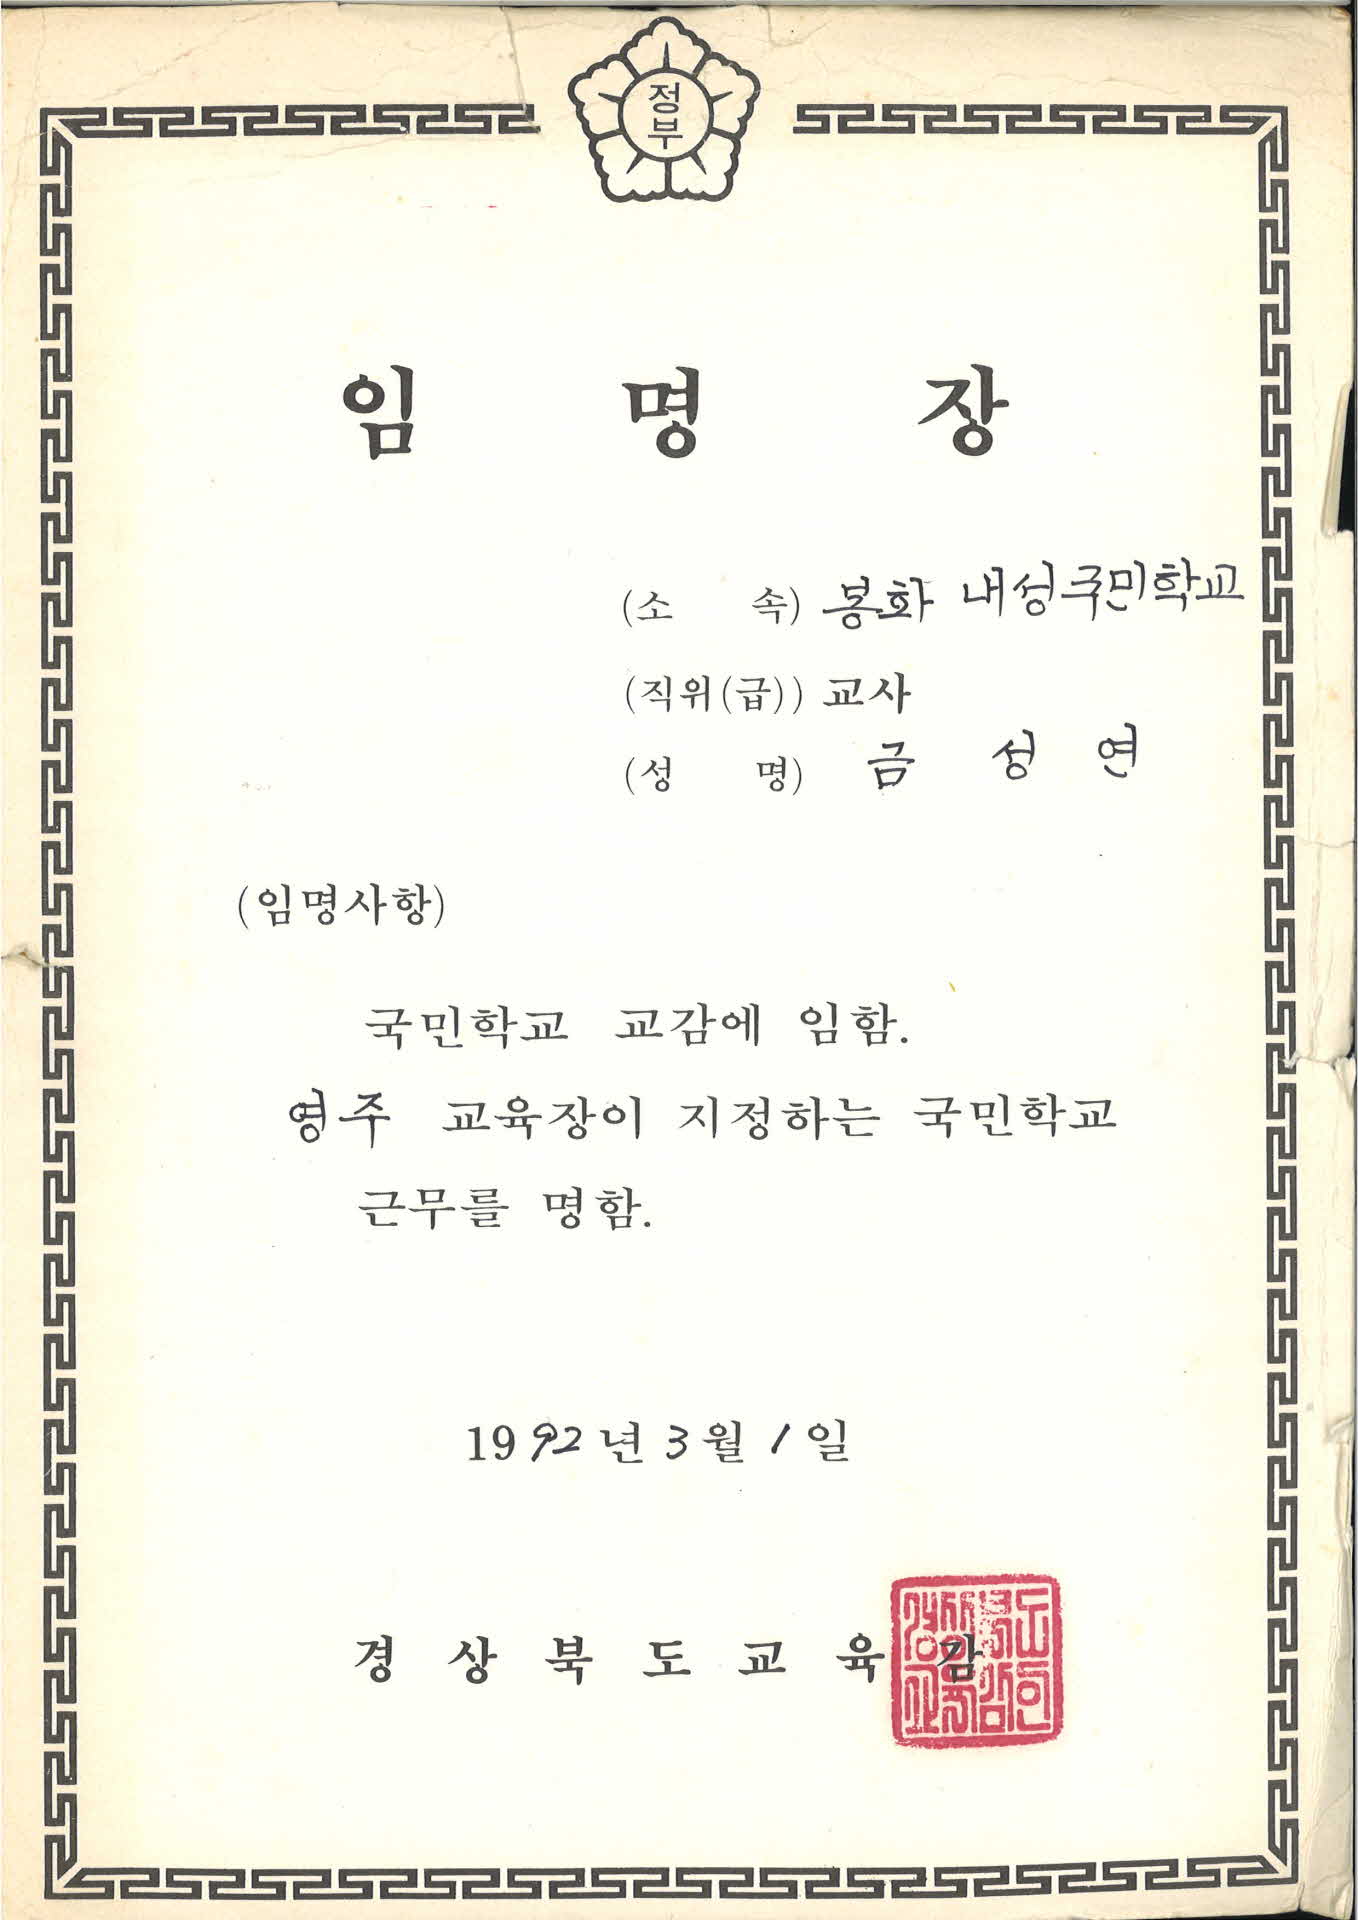 정
부
임 명 장
(소 속) 봉화 내성국민학교
(직위(급)) 교사
(성 명) 금 성 연
(임명사항)
국민학교 교감에 임함.
영주 교육장이 지정하는 국민학교
근무를 명함.
1992년 3월 1일
경 상 북 도 교 육 감
경상북도교육감인